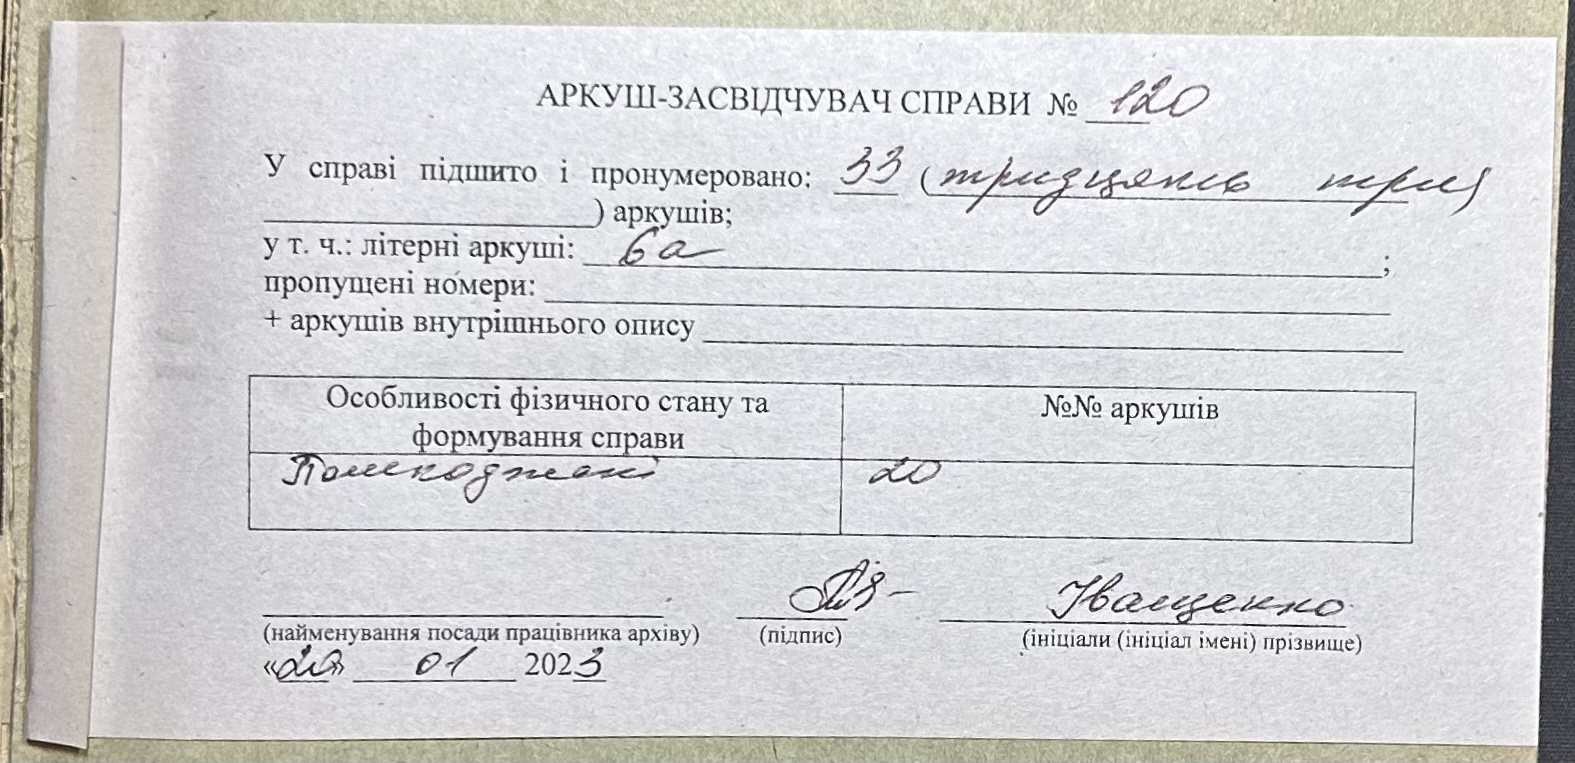 АРКУШ-ЗАСВІДЧУВАЧ СПРАВИ № 120
У справі підшито і пронумеровано: 33 (тридцять три)
) аркушів;
у т. ч.: літерні аркуші: 6а ;
пропущені номери:
+ аркушів внутрішнього опису
Особливості фізичного стану та формування справи
№№ аркушів
Пошкоджені
20
Іващенко
(найменування посади працівника архіву) (підпис) (ініціали (ініціал імені) прізвище)
« » 01 2023